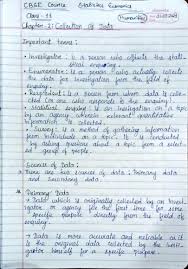 CBSE Course Statistics Economics
Class - 11
Chapter - 2: Collection Of Data
Important terms:
• Investigator: is a person who conducts the
• Enumerator: is a person who actually collects
the data for investigation from the field of
• Respondent: is a person from whom data is collected
or one who responds to the enquiry.
• Statistical enquiry: is an investigation on a topic
by an agency wherein relevant quantitative
information is collected.
• Survey: is a method of gathering information
from individuals on a topic. It is conducted
by asking questions about a
group of people.
Sources of Data:
There are two sources of data: Primary data
and Secondary data.
Primary Data
• Data which is originally collected by an
or agency for the first time for some
specific purpose directly from the field of
enquiry.
• Data is more accurate and reliable as it
is the original data collected by the
for some specific purpose.